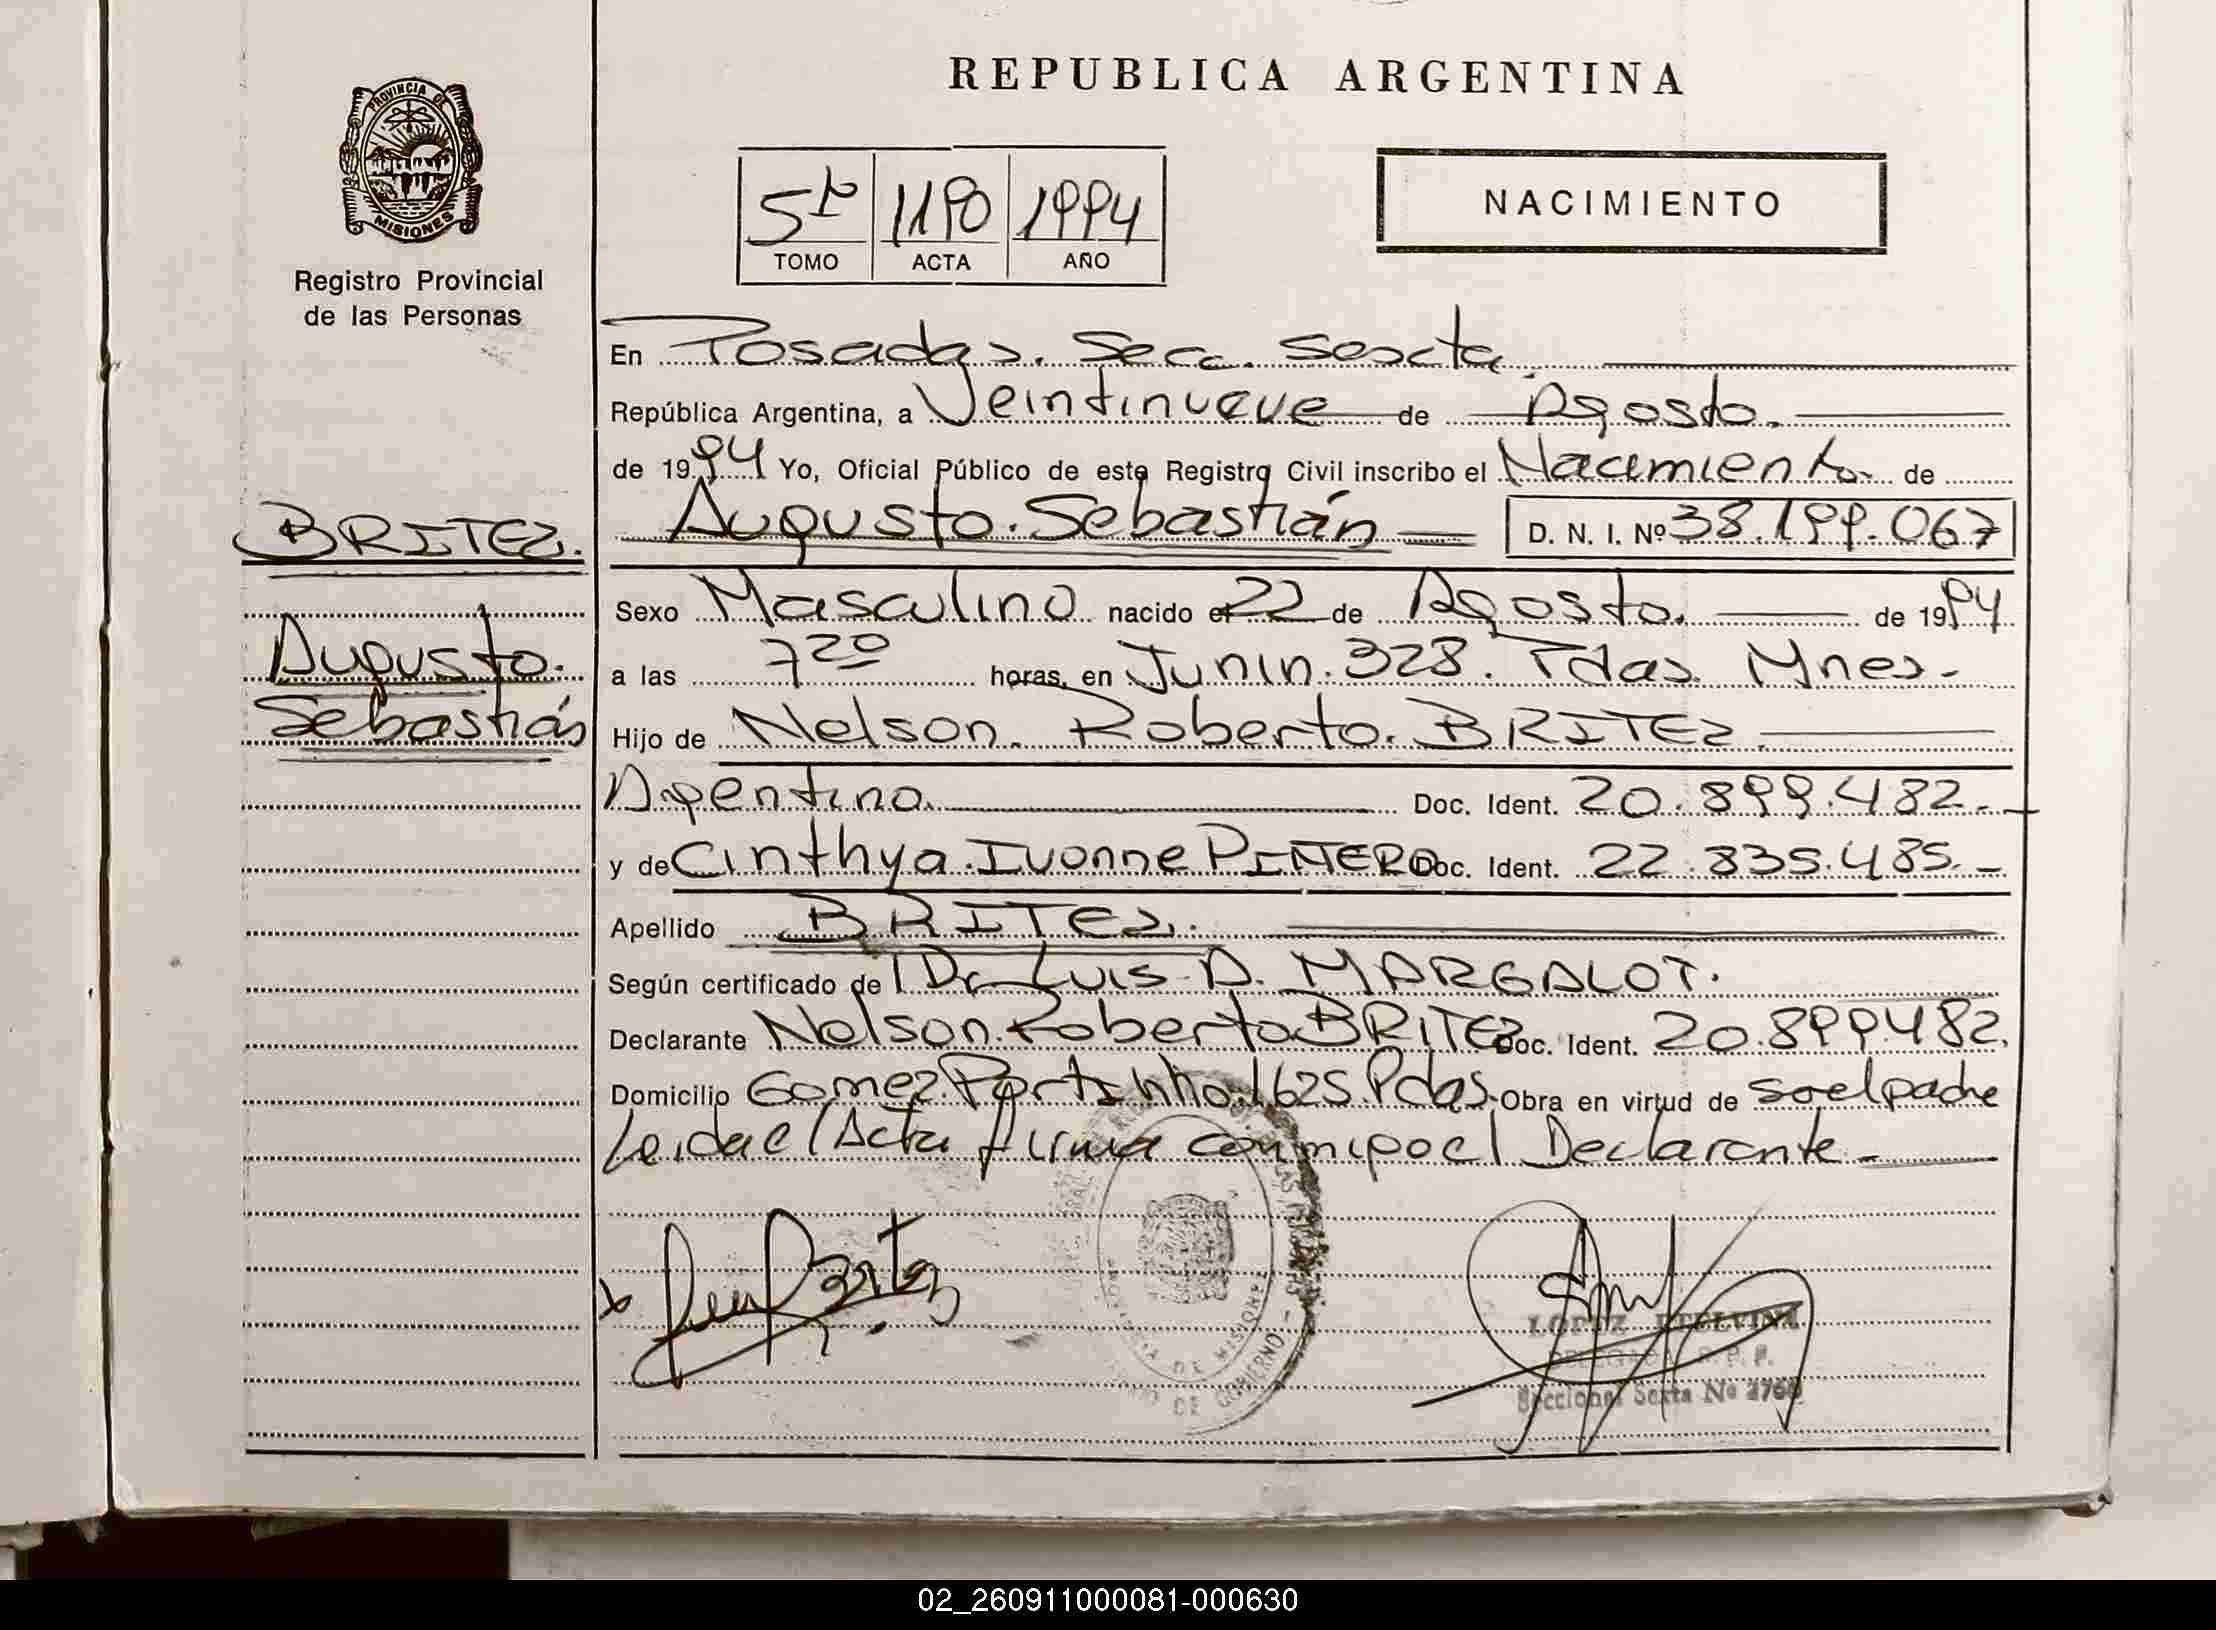 REPUBLICA ARGENTINA
PROVINCIA DE
MISIONES
Registro Provincial
de las Personas
5to 1190 1994
TOMO ACTA AÑO
NACIMIENTO
En Posadas. Secc. Sexta
República Argentina, a Veintinueve de Agosto.
de 1994 Yo, Oficial Público de este Registro Civil inscribo el Nacimiento. de
BRITEZ.
Augusto. Sebastián D. N. I. Nº 38.199.067
Sexo Masculino nacido el 22 de Agosto. de 1994
Augusto.
a las 7 20 horas, en Junin. 328. Pdas. Mnes.
Sebastián
Hijo de Nelson. Roberto. BRITEZ
Argentino. Doc. Ident. 20.899.482.
y de Cinthya. Ivonne Doc. Ident. 22.835.485.
Apellido BRITEZ.
Según certificado de Dr Luis A. MARGALOT.
Declarante Nelson. Roberto BRITEZ Doc. Ident. 20.899.482.
Domicilio Gomez. Portinho. 1625. Pdas. Obra en virtud de so el padre
Leida el Acta firma conmigo el Declarante.
Britez
LOPEZ ETELVINA
DELEGADA R. P. P.
Seccional Sexta Nº
DE MISIONES
DE GOBIERNO
02_260911000081-000630